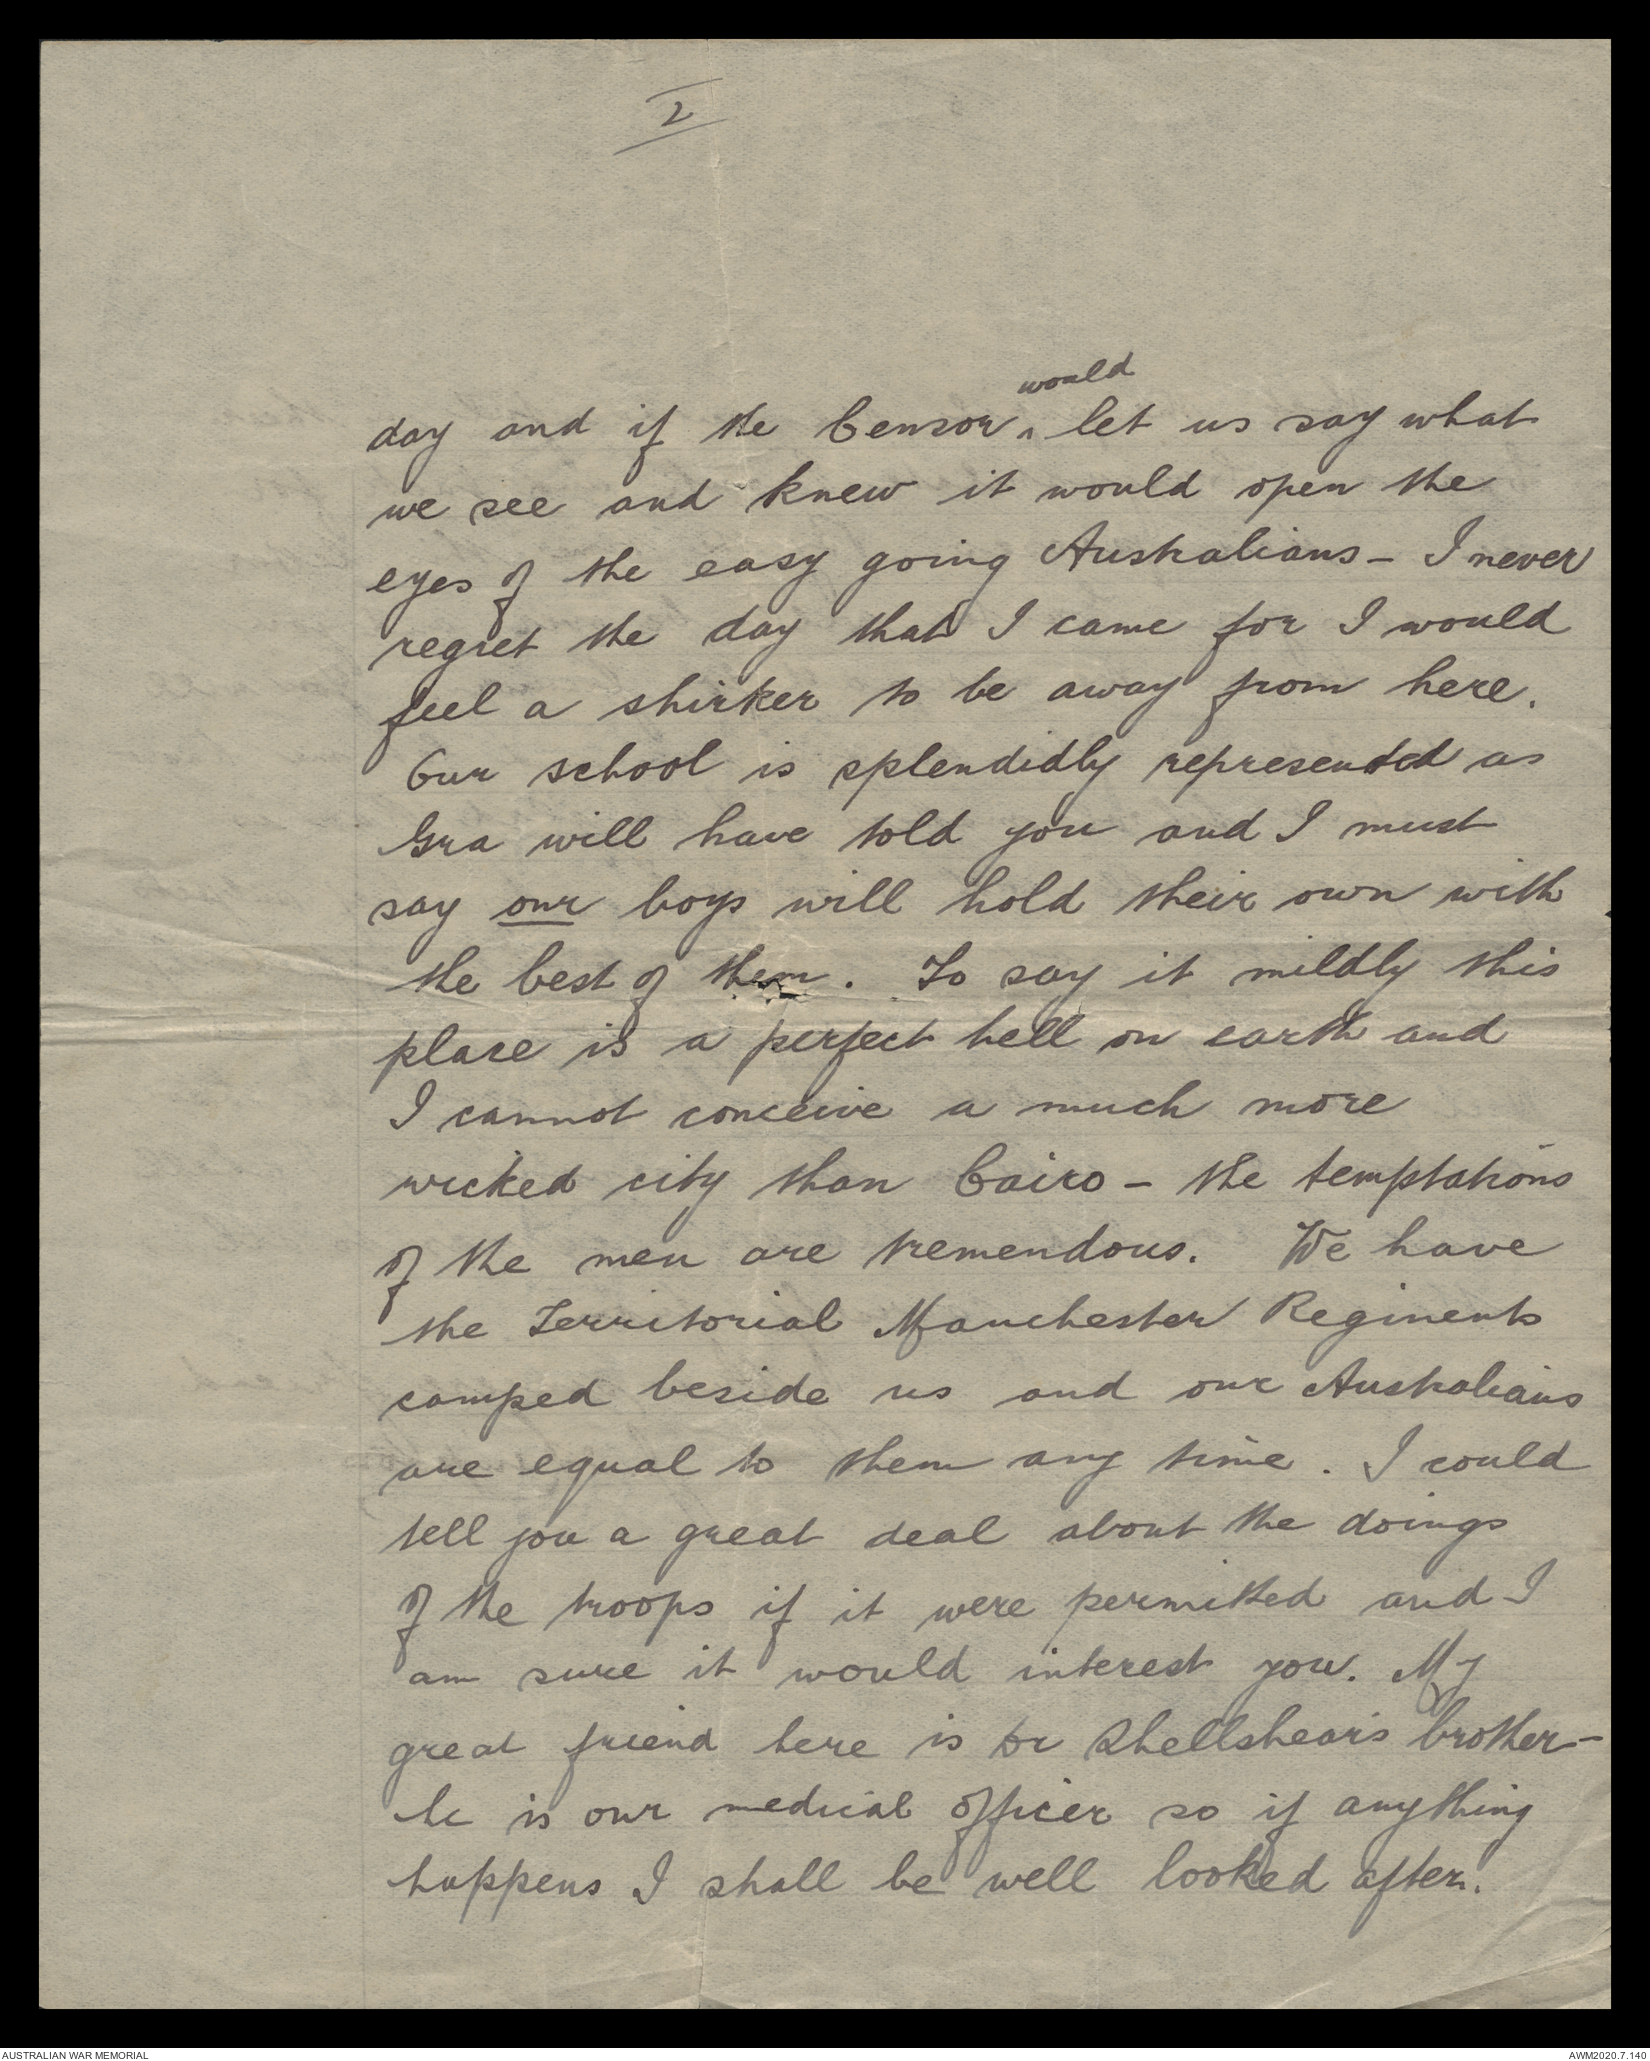 2
would
day and if the Censor ^ let us say what
we see and knew it would open the
eyes of the easy going Australians - I never
regret the day that I came for I would
feel a shirker to be away from here.
Our school is splendidly represented as
Gra will have told you and I must
say our boys will hold their own with
the best of them. To say it mildly this
place is a perfect hell on earth and
I cannot conceive a much more
wicked city than Cairo - the temptations
of the men are tremendous. We have
the Territorial Manchester Regiments
camped beside us and our Australians
are equal to them any time. I could
tell you a great deal about the doings
of the troops if it were permitted and I
am sure it would interest you. My
great friend here is Dr Shellshear's brother -
he is our medical officer so if anything
happens I shall be well looked after.
AUSTRALIAN WAR MEMORIAL
AWM2020.7.140